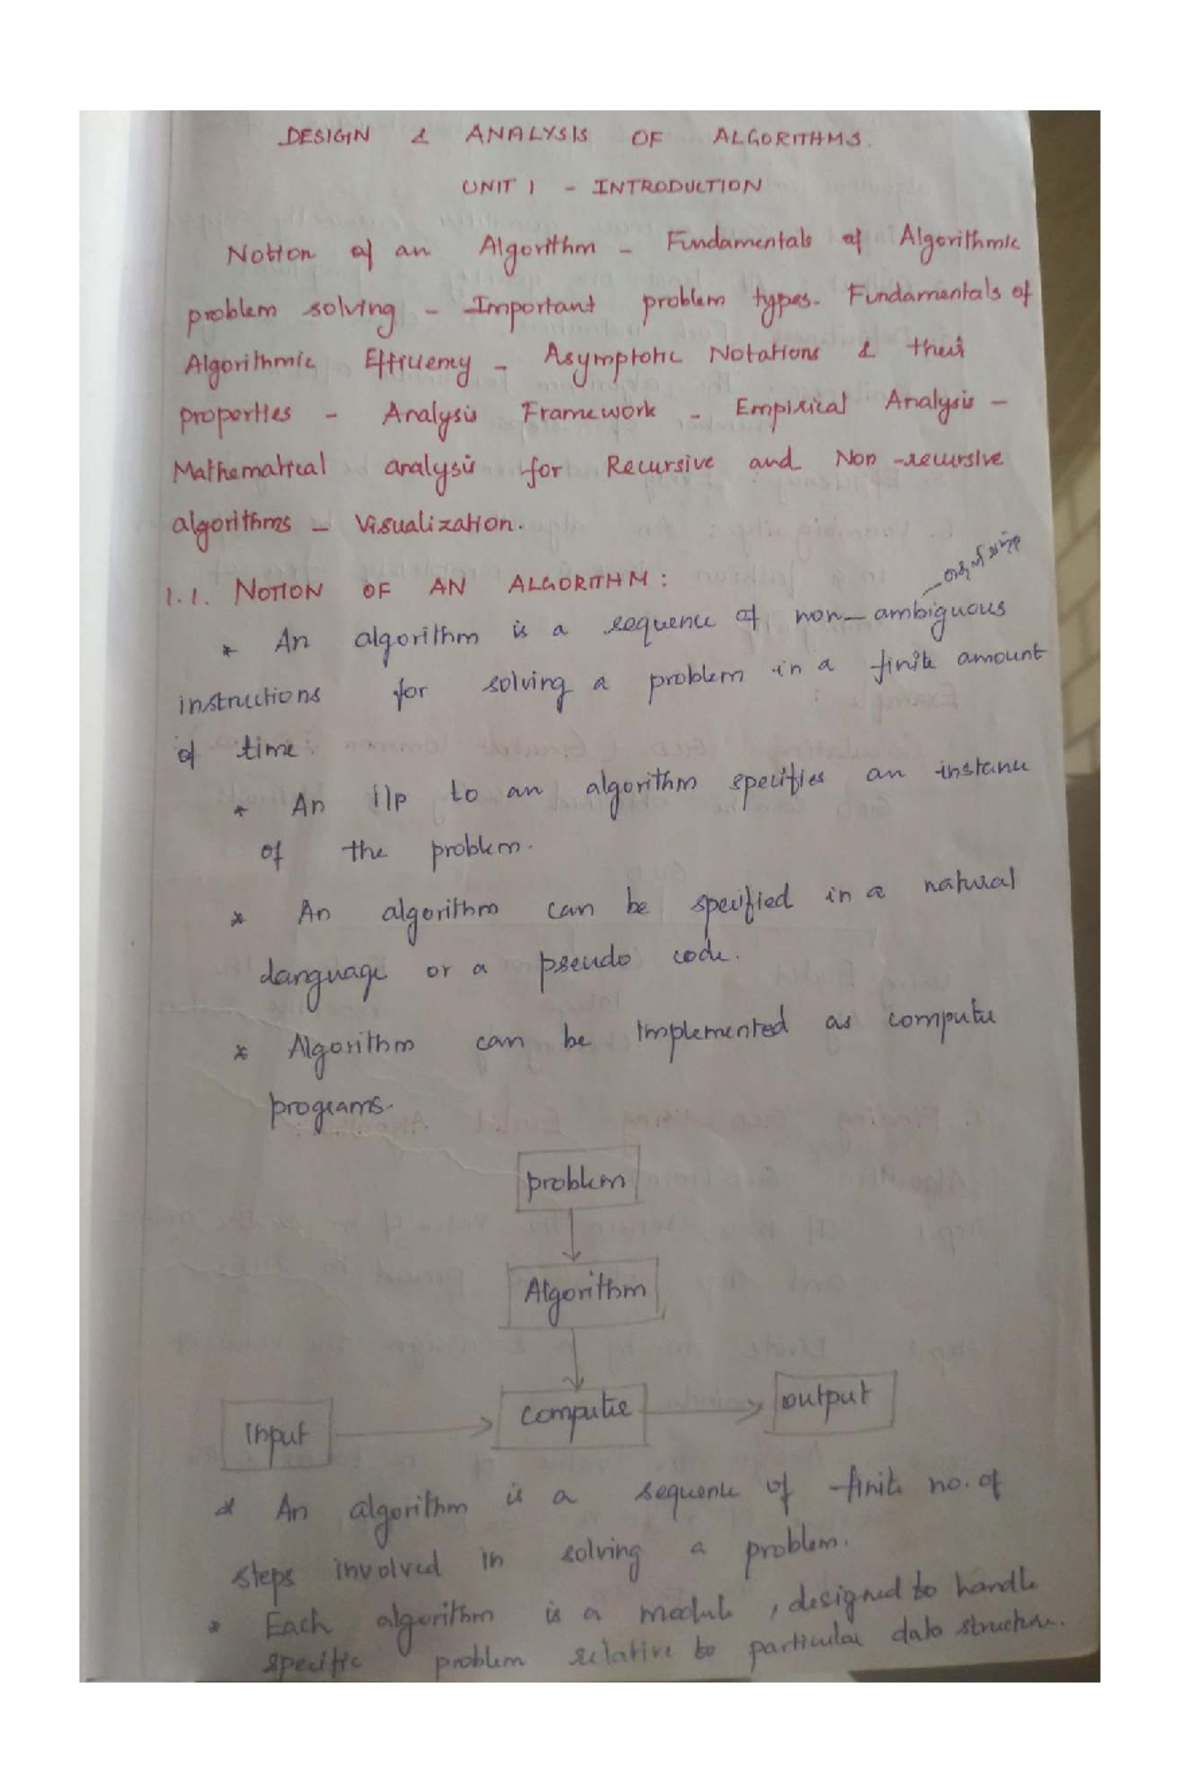 DESIGN & ANALYSIS OF ALGORITHMS.
UNIT 1 - INTRODUCTION
Notion of an Algorithm - Fundamentals of Algorithmic
problem solving - Important problem types. Fundamentals of
Algorithmic Efficiency - Asymptotic Notations & their
properties - Analysis Framework - Empirical Analysis -
Mathematical analysis for Recursive and Non-recursive
algorithms - Visualization.
1.1. NOTION OF AN ALGORITHM:
* An algorithm is a sequence of non-ambiguous
instructions for solving a problem in a finite amount
of time.
* An i/p to an algorithm specifies an instance
of the problem.
* An algorithm can be specified in a natural
language or a pseudo code.
* Algorithm can be implemented as computer
programs.
problem
Algorithm
Input computer output
* An algorithm is a sequence of finite no. of
steps involved in solving a problem.
* Each algorithm is a module, designed to handle
specific problem relative to particular data structure.